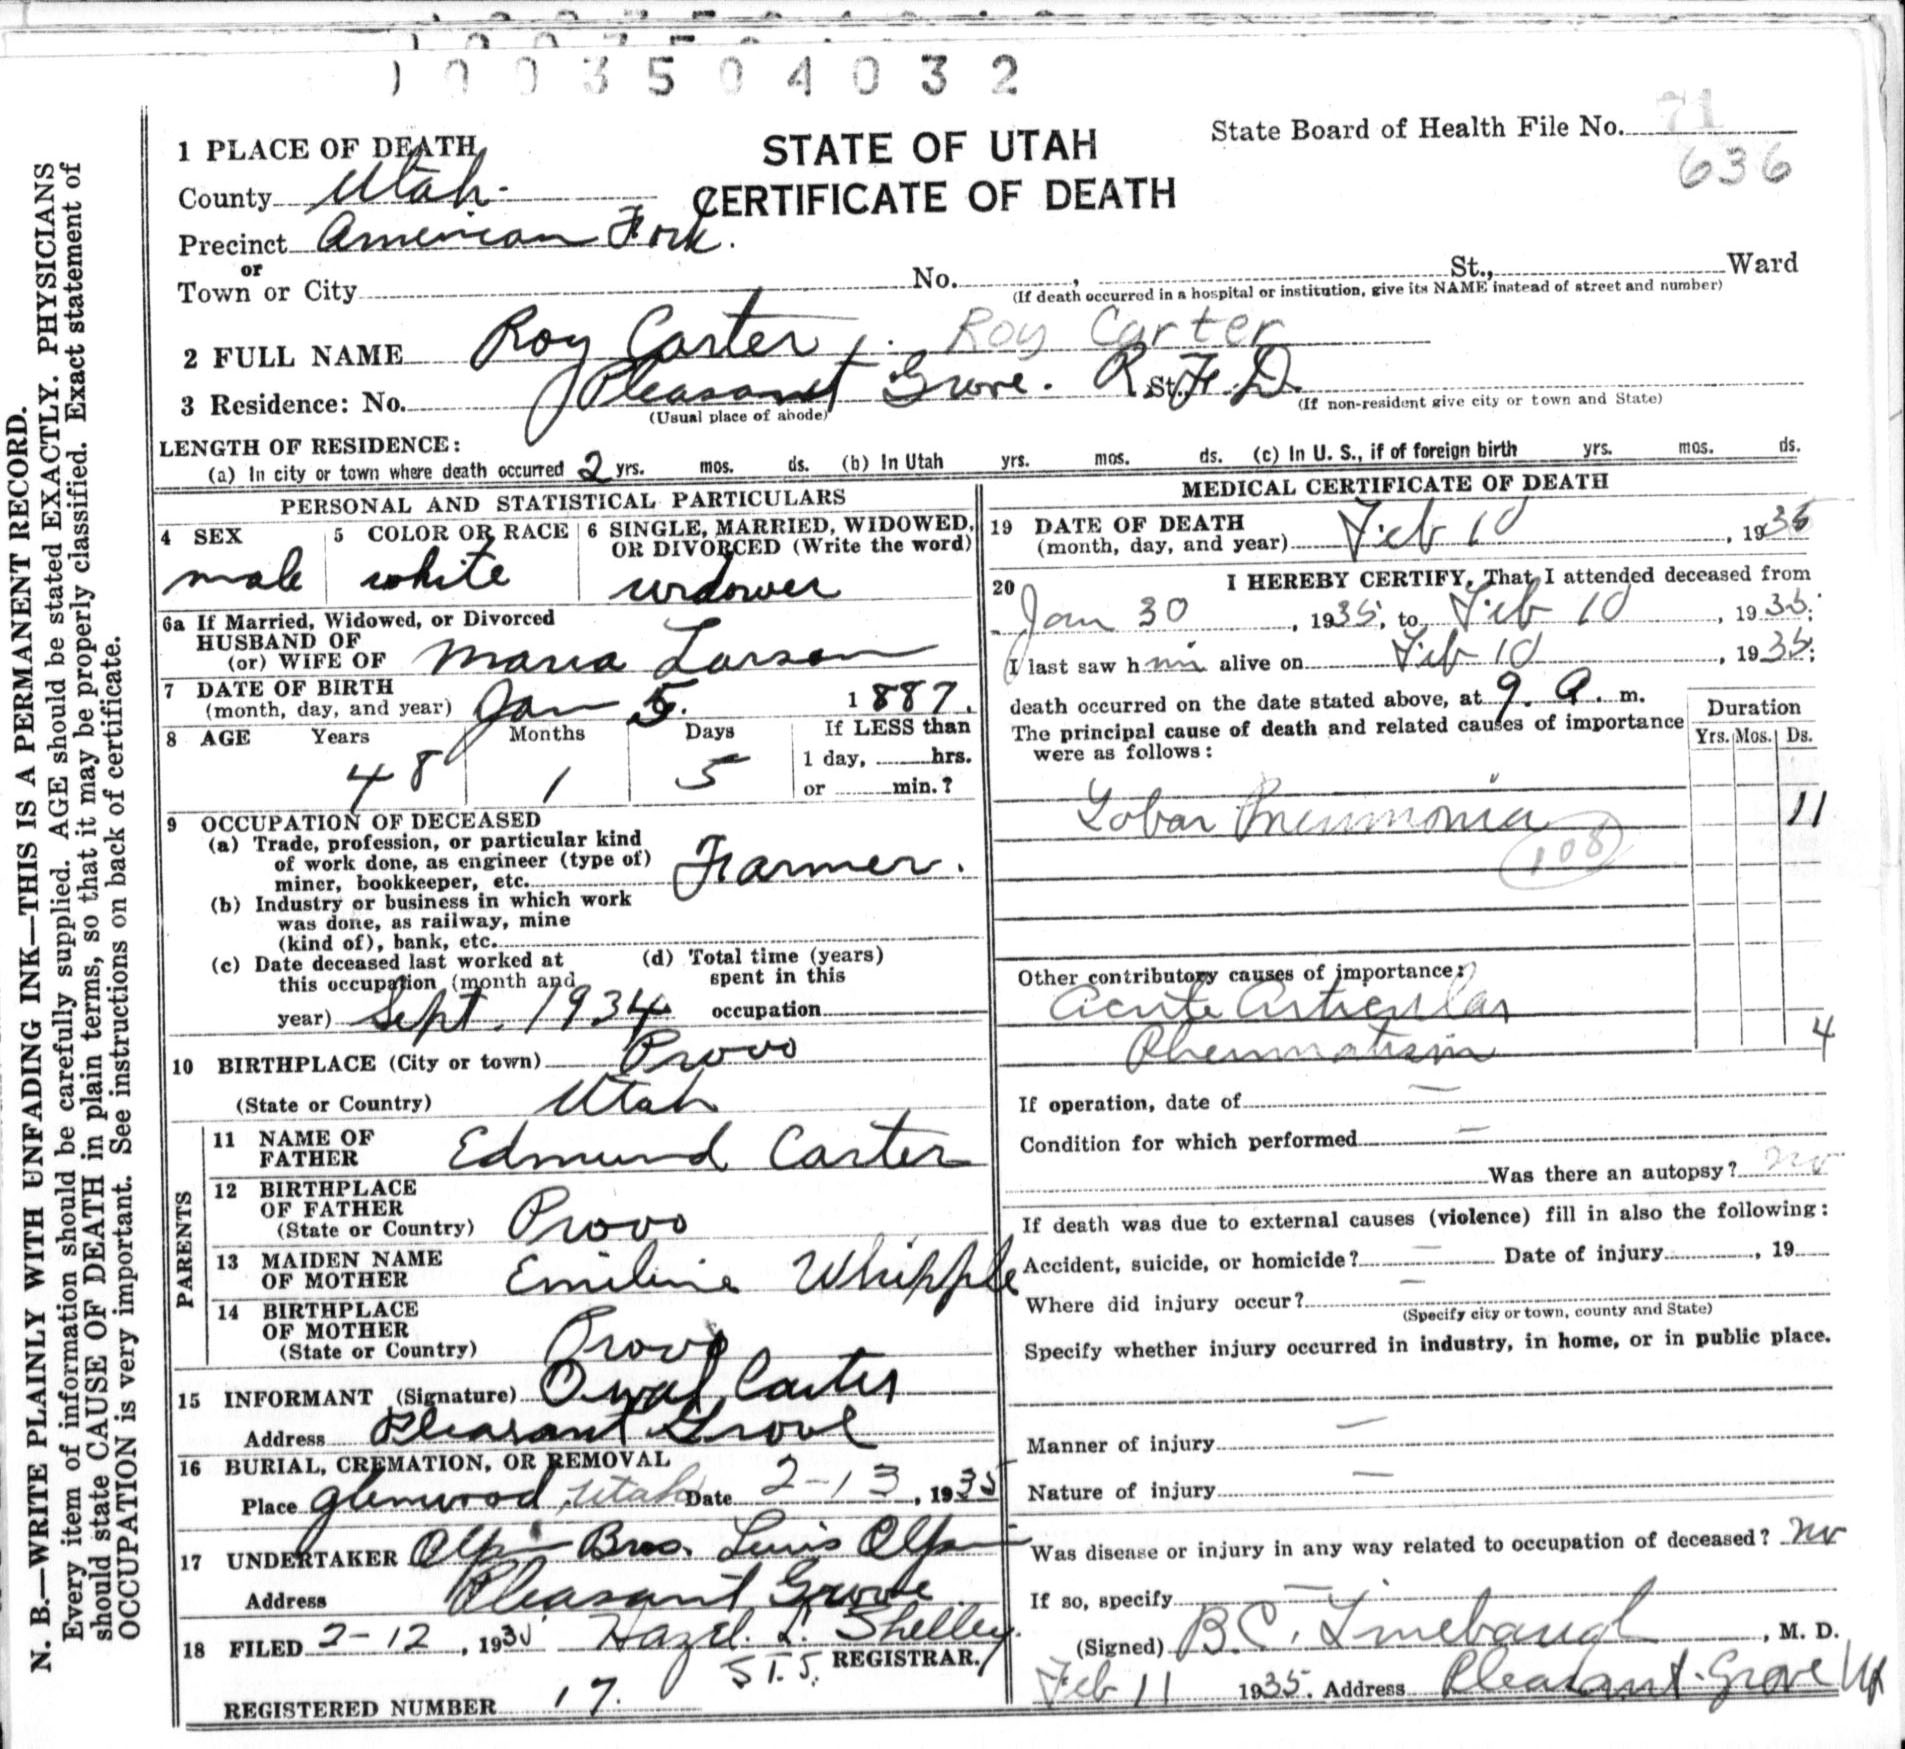 1003504032
State Board of Health File No. 71
636
STATE OF UTAH
CERTIFICATE OF DEATH
1 PLACE OF DEATH
County Utah
Precinct American Fork.
or
Town or City No. , St., Ward
(If death occurred in a hospital or institution, give its NAME instead of street and number)
2 FULL NAME Roy Carter Roy Carter
3 Residence: No. Pleasant Grove. R. St. F. D.
(Usual place of abode) (If non-resident give city or town and State)
LENGTH OF RESIDENCE:
(a) In city or town where death occurred 2 yrs. mos. ds. (b) In Utah yrs. mos. ds. (c) In U. S., if of foreign birth yrs. mos. ds.
PERSONAL AND STATISTICAL PARTICULARS
4 SEX
male
5 COLOR OR RACE
white
6 SINGLE, MARRIED, WIDOWED,
OR DIVORCED (Write the word)
widower
6a If Married, Widowed, or Divorced
HUSBAND OF
(or) WIFE OF Maria Larsen
7 DATE OF BIRTH
(month, day, and year) Jan 5. 1887.
8 AGE Years Months Days If LESS than
48 1 5 1 day, hrs.
or min.?
9 OCCUPATION OF DECEASED
(a) Trade, profession, or particular kind
of work done, as engineer (type of)
miner, bookkeeper, etc. Farmer.
(b) Industry or business in which work
was done, as railway, mine
(kind of), bank, etc.
(c) Date deceased last worked at
this occupation (month and
year) Sept. 1934
(d) Total time (years)
spent in this
occupation
10 BIRTHPLACE (City or town) Provo
(State or Country) Utah
PARENTS
11 NAME OF
FATHER Edmund Carter
12 BIRTHPLACE
OF FATHER
(State or Country) Provo
13 MAIDEN NAME
OF MOTHER Emiline Whipple
14 BIRTHPLACE
OF MOTHER
(State or Country) Provo
15 INFORMANT (Signature) Carter
Address Pleasant Grove
16 BURIAL, CREMATION, OR REMOVAL
Place Glenwood, Utah Date 2-13, 1935
17 UNDERTAKER Bros.
Address Pleasant Grove
18 FILED 2-12, 193 Hazel L. Shelley
REGISTRAR.
REGISTERED NUMBER 17.
MEDICAL CERTIFICATE OF DEATH
19 DATE OF DEATH
(month, day, and year) Feb 10, 1935
20 I HEREBY CERTIFY, That I attended deceased from
Jan 30, 1935, to Feb 10, 1935;
I last saw him alive on Feb 10, 1935;
death occurred on the date stated above, at 9 A. m.
The principal cause of death and related causes of importance
were as follows:
Duration
Yrs. Mos. Ds.
Lobar Pneumonia 11
108
Other contributory causes of importance:
Acute Articular
Rheumatism 4
If operation, date of —
Condition for which performed —
Was there an autopsy? no
If death was due to external causes (violence) fill in also the following:
Accident, suicide, or homicide? — Date of injury , 19
Where did injury occur? —
(Specify city or town, county and State)
Specify whether injury occurred in industry, in home, or in public place.
Manner of injury —
Nature of injury —
Was disease or injury in any way related to occupation of deceased? no
If so, specify —
(Signed) B.C. Linebaugh, M. D.
Feb 11 1935. Address Pleasant Grove Ut
N. B.—WRITE PLAINLY WITH UNFADING INK—THIS IS A PERMANENT RECORD.
Every item of information should be carefully supplied. AGE should be stated EXACTLY. PHYSICIANS
should state CAUSE OF DEATH in plain terms, so that it may be properly classified. Exact statement of
OCCUPATION is very important. See instructions on back of certificate.